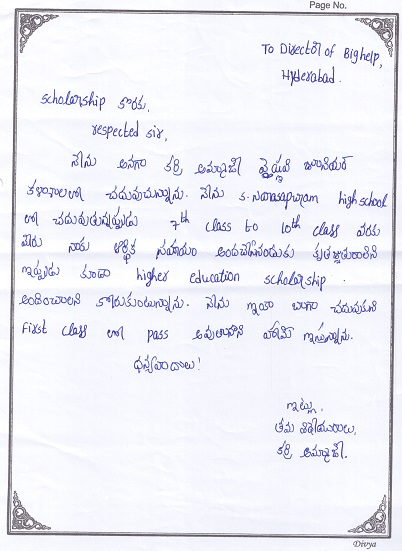 Page No.
To Director of Bighelp,
Hyderabad.
scholarship కొరకు,
respected sir,
నేను అనగా కర్రి అమ్మాజీ వైష్ణవి జూనియర్
కళాశాలలో చదువుచున్నాను. నేను S. Narasapuram high school
లో చదువుతున్నప్పుడు 7th class to 10th class వరకు
మీరు నాకు ఆర్థిక సహాయం అందచేసినందుకు కృతజ్ఞతురాలిని
ఇప్పుడు కూడా higher education scholarship
అందించాలని కోరుకుంటున్నాను. నేను ఇంకా బాగా చదువుకుని
First class లో pass అవుతానని హామీ ఇస్తున్నాను.
ధన్యవాదాలు!
ఇట్లు,
తమ విధేయురాలు,
కర్రి అమ్మాజీ.
Divya